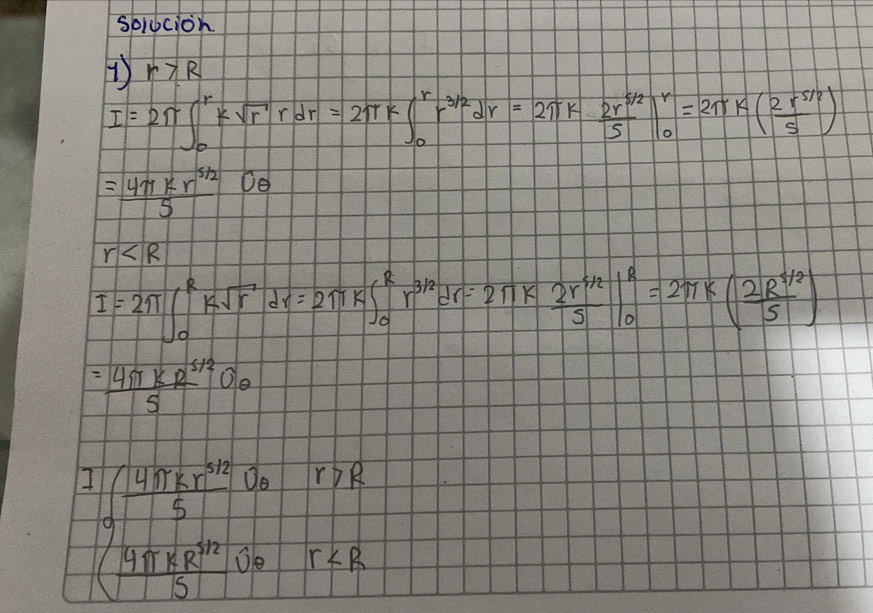 Solución
1) r > R
I = 2π ∫₀^r k√r r dr = 2πk ∫₀^r r^3/2 dr = 2πk 2r^5/2/5 |₀^r = 2πk (2r^5/2/5)
= 4πkr^5/2/5 Ûθ
r < R
I = 2π ∫₀^R k√r dr = 2πk ∫₀^R r^3/2 dr = 2πk 2r^5/2/5 |₀^R = 2πk (2R^5/2/5)
= 4πkR^5/2/5 Ûθ
I { 4πkr^5/2/5 Ûθ r > R
4πkR^5/2/5 Ûθ r < R